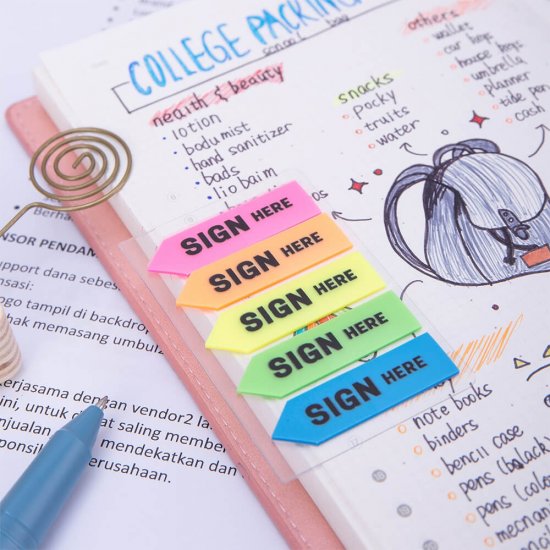 COLLEGE PACKING
school bag
nealth & beauty
lotion
body mist
hand sanitizer
pads
lip balm
snacks
pocky
fruits
water
others
wallet
car keys
house keys
umbrella
planner
tide pen
cash
SIGN HERE
SIGN HERE
SIGN HERE
SIGN HERE
SIGN HERE
note books
binders
pencil case
pens (black
pens (colo
mechan
Berha
NSOR PENDAM
support dana sebes
nsasi:
ogo tampil di backdrop
hak memasang umbul
kerjasama dengan vendor2 la
ini, untuk d at saling member
njualan mendekatkan d
ponsibi perusahaan.